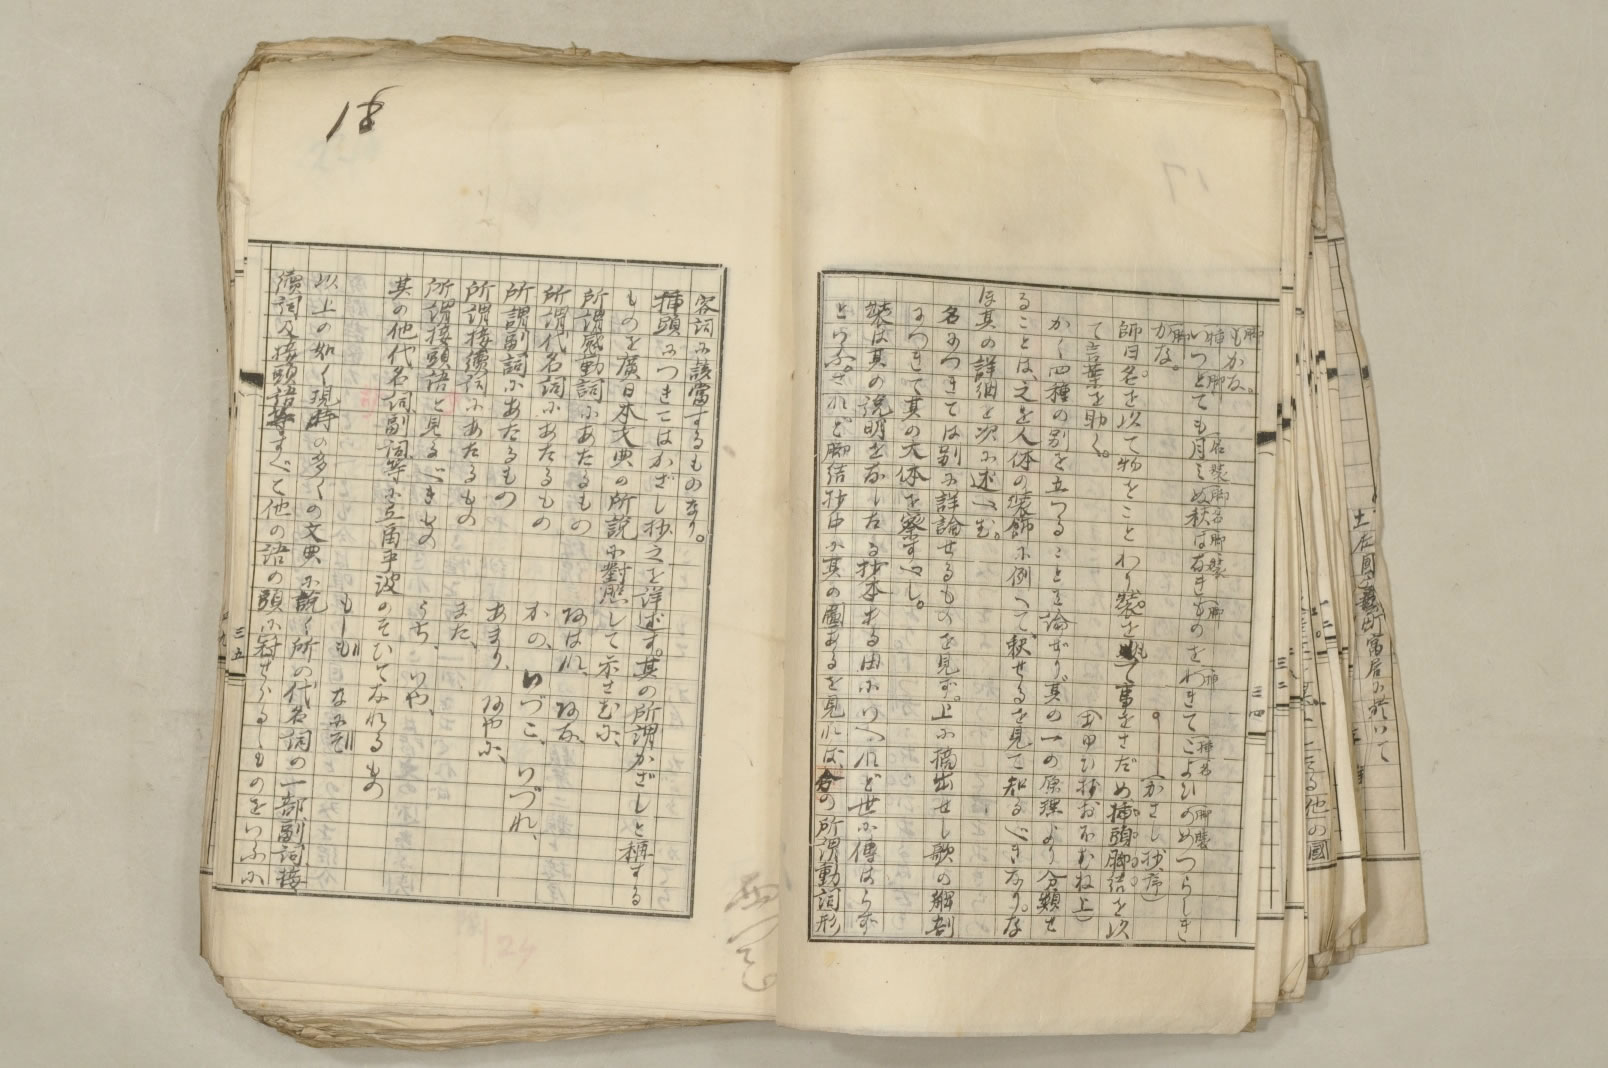 もかな。
いつとても月みぬ秋はなきものをわきてこよひのめつらしき
かな。
(かさし抄序)
師曰名を以て物をことわり装を以て事をさだめ挿頭脚結を以
て言葉を助く。
(あゆひ抄おほむね上)
かく四種の別を立つることを論ぜり其の一の原理より分類せ
ることは、之を人体の装飾に例へて釈せるを見て知るべきなり。な
ほ其の詳細を次に述べむ。
名につきては別に詳論せるものを見ず。上に摘出せし歌の解剖
につきて其の大体を察すべし。
装は其の説明をなしたる抄本ある由にいへれど世に傳はらず
といふ。されど脚結抄中に其の圖あるを見れば、今の所謂動詞形
三四
容詞に該當するものなり。
挿頭につきてはかざし抄之を詳述す。其の所謂かざしと称する
ものを廣日本文典の所説に對照して示さむに、
所謂感動詞にあたるもの あはれ、あな、
所謂代名詞にあたるもの かの、いづこ、いづれ、
所謂副詞にあたるもの あまり、あやに、
所謂接續詞にあたるもの また、
所謂接頭語と見るべきもの うち、いや、
其の他代名詞副詞等に弖爾乎波のそひてなれるもの
もしも なにぞ
以上の如く現時の多くの文典に説く所の代名詞の一部副詞接
續詞及接頭語等すべて他の語の頭に冠せらるゝものをいふに
三五
18
17
24
土佐國
富居に於いて
る他の國
三二